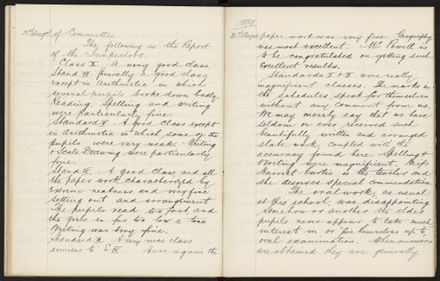 of Committee.
The following is the Report
of the Inspectors.
Class X. A very good class.
Stand VI. Generally a good class
except in Arithmetic in which
several pupils broke down badly.
Reading, Spelling and Writing
were particularly fine.
Standard V. A good class except
in Arithmetic in which some of the
pupils were very weak. Writing
& Scale Drawing were particularly
fine.
Stand IV. A good class and all
the paper work characterized by
extreme neatness and very fine
setting out and arrangement.
The pupils read too fast, and
the girls in far too low a tone.
Writing was very fine.
Standard A very nice class
similar to S. IV. Here again the
paper work was very fine Geography
was most excellent. Mr Powell is
to be congratulated on getting such
excellent results.
Standards I & II were really
magnificent classes. The marks in
the schedules speak for themselves
without any comment from us.
We may merely say that we have
seldom or ever received such
beautifully written and arranged
slate work, coupled with the
accuracy found here. Spelling &
Writing were magnificent. Miss
Harriet is the teacher and
she deserves special commendation.
The oral work, as usual
at this school, was disappointing.
Somehow or another the elder
pupils never appear to take much
interest in or give themselves up to
oral examination. When answers
are obtained they are generally